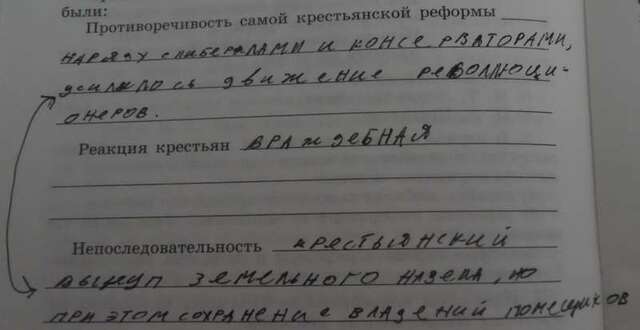 были:
Противоречивость самой крестьянской реформы
наряду с либералами и консерваторами,
усилилось движение революци-
онеров.
Реакция крестьян враждебная
Непоследовательность крестьянский
выкуп земельного надела, но
при этом сохранение владений помещиков